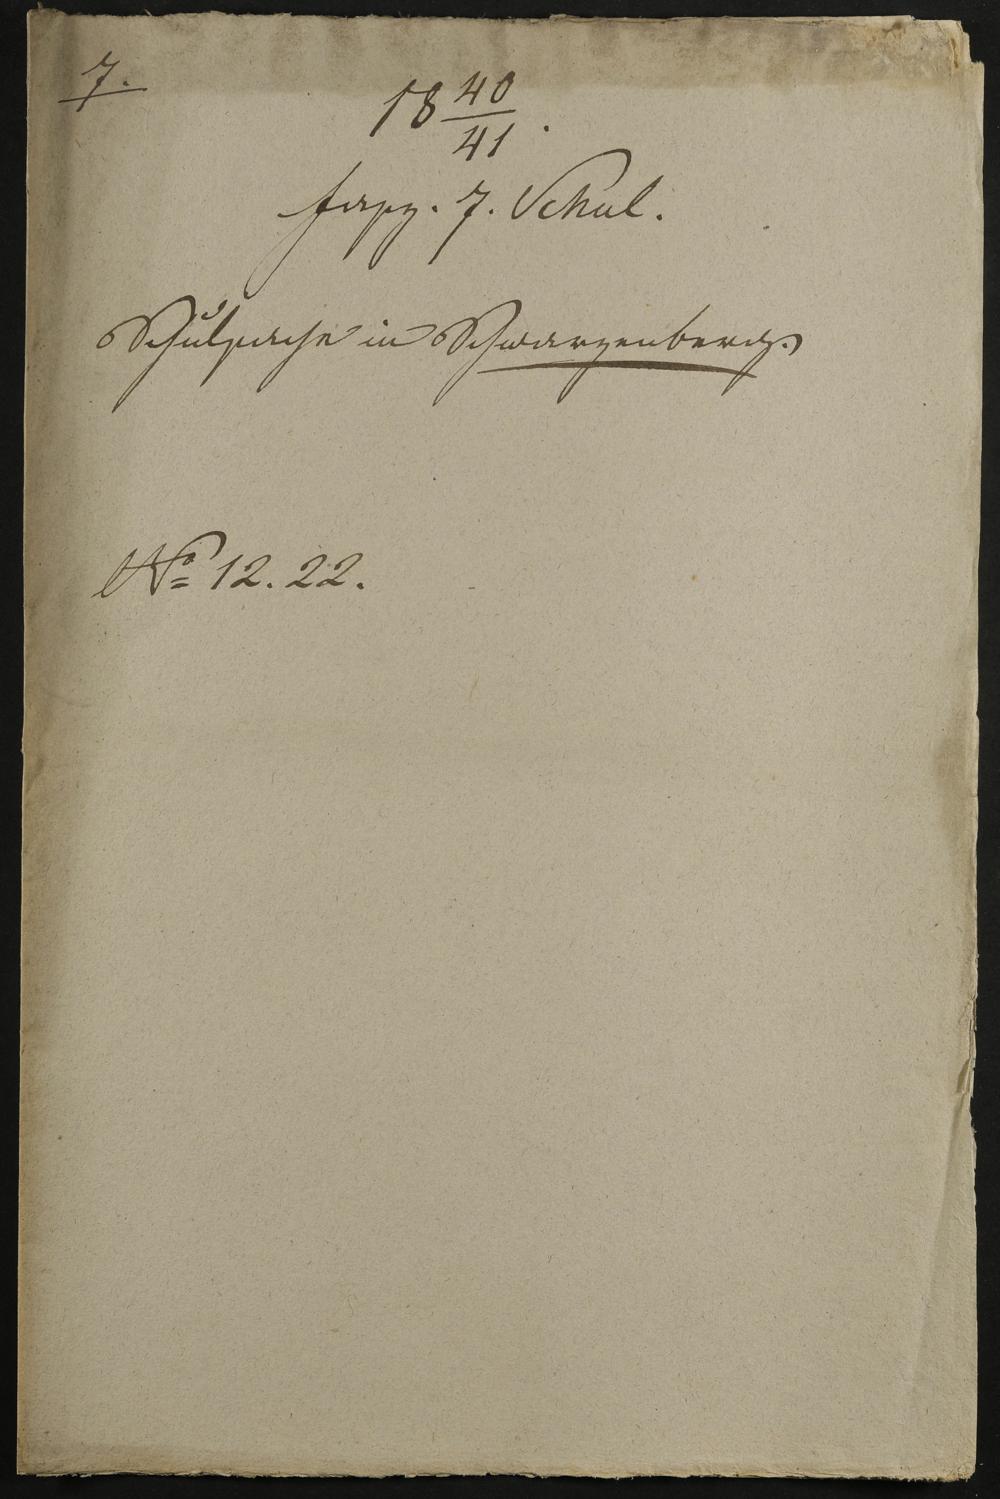 7.
18 40/41.
Fasz. 7. Schul.
Schulsache in Schwarzenberg.
No 12. 22.